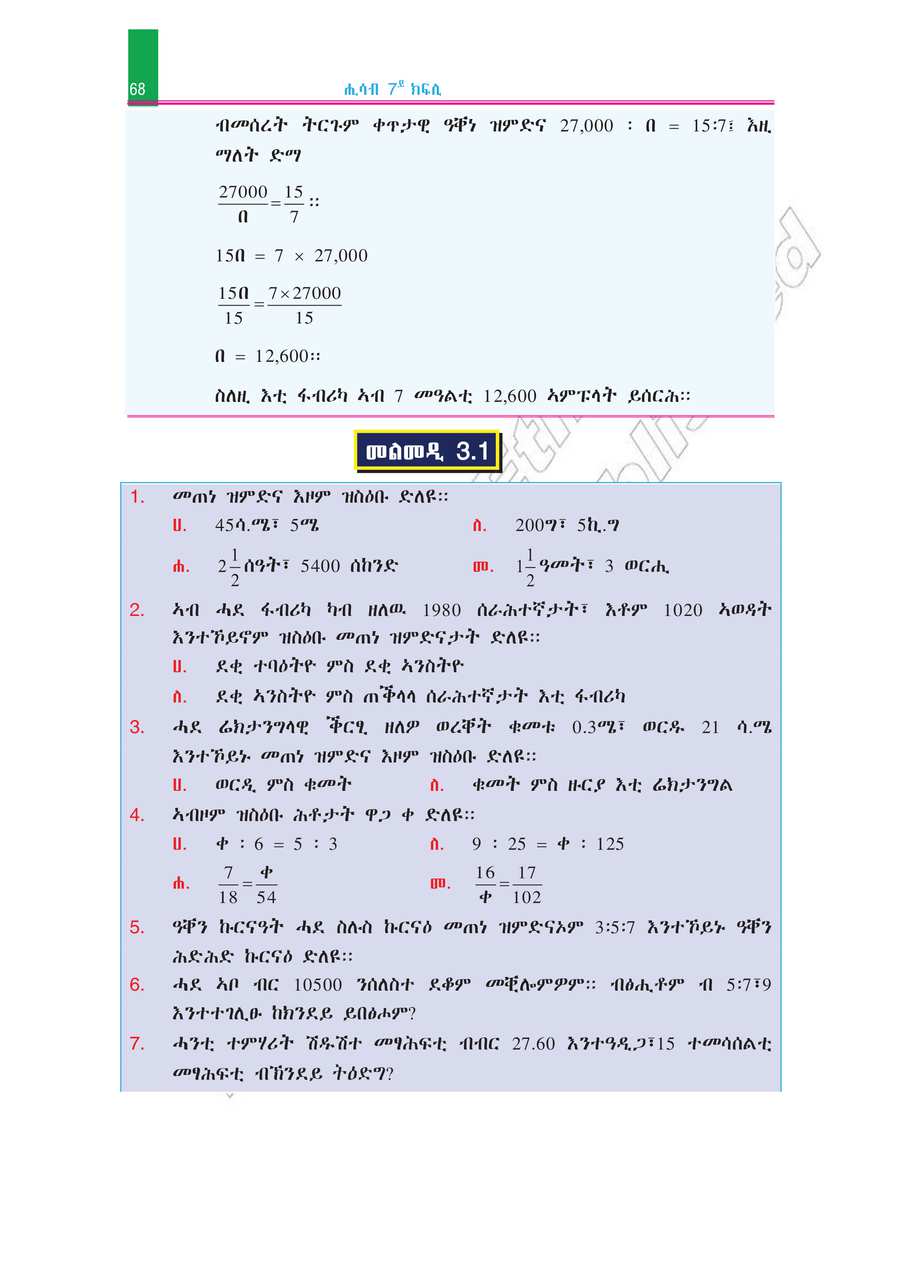 68
ሒሳብ 7ይ ክፍሊ
ብመሰረት ትርጉም ቀጥታዊ ዓቐነ ዝምድና 27,000 : በ = 15:7፤ እዚ
ማለት ድማ
27000/በ = 15/7 ።
15በ = 7 × 27,000
15በ/15 = 7×27000/15
በ = 12,600።
ስለዚ እቲ ፋብሪካ ኣብ 7 መዓልቲ 12,600 ኣምፑላት ይሰርሕ።
መልመዲ 3.1
1. መጠነ ዝምድና እዞም ዝስዕቡ ድለዩ።
ሀ. 45ሳ.ሜ፣ 5ሜ ለ. 200ግ፣ 5ኪ.ግ
ሐ. 2 1/2 ሰዓት፣ 5400 ሰከንድ መ. 1 1/2 ዓመት፣ 3 ወርሒ
2. ኣብ ሓደ ፋብሪካ ካብ ዘለዉ 1980 ሰራሕተኛታት፣ እቶም 1020 ኣወዳት
እንተኾይኖም ዝስዕቡ መጠነ ዝምድናታት ድለዩ።
ሀ. ደቂ ተባዕትዮ ምስ ደቂ ኣንስትዮ
ለ. ደቂ ኣንስትዮ ምስ ጠቕላላ ሰራሕተኛታት እቲ ፋብሪካ
3. ሓደ ሬክታንግላዊ ቕርፂ ዘለዎ ወረቐት ቁመቱ 0.3ሜ፣ ወርዱ 21 ሳ.ሜ
እንተኾይኑ መጠነ ዝምድና እዞም ዝስዕቡ ድለዩ።
ሀ. ወርዲ ምስ ቁመት ለ. ቁመት ምስ ዙርያ እቲ ሬክታንግል
4. ኣብዞም ዝስዕቡ ሕቶታት ዋጋ ቀ ድለዩ።
ሀ. ቀ : 6 = 5 : 3 ለ. 9 : 25 = ቀ : 125
ሐ. 7/18 = ቀ/54 መ. 16/ቀ = 17/102
5. ዓቐን ኩርናዓት ሓደ ስሉስ ኩርናዕ መጠነ ዝምድናኦም 3:5:7 እንተኾይኑ ዓቐን
ሕድሕድ ኩርናዕ ድለዩ።
6. ሓደ ኣቦ ብር 10500 ንሰለስተ ደቆም መቒሎምዎም። ብፅሒቶም ብ 5:7፣9
እንተተገሊፁ ክክንደይ ይበፅሖም?
7. ሓንቲ ተምሃሪት ሽዱሽተ መፃሕፍቲ ብብር 27.60 እንተዓዲጋ፣15 ተመሳሰልቲ
መፃሕፍቲ ብኽንደይ ትዕድግ?